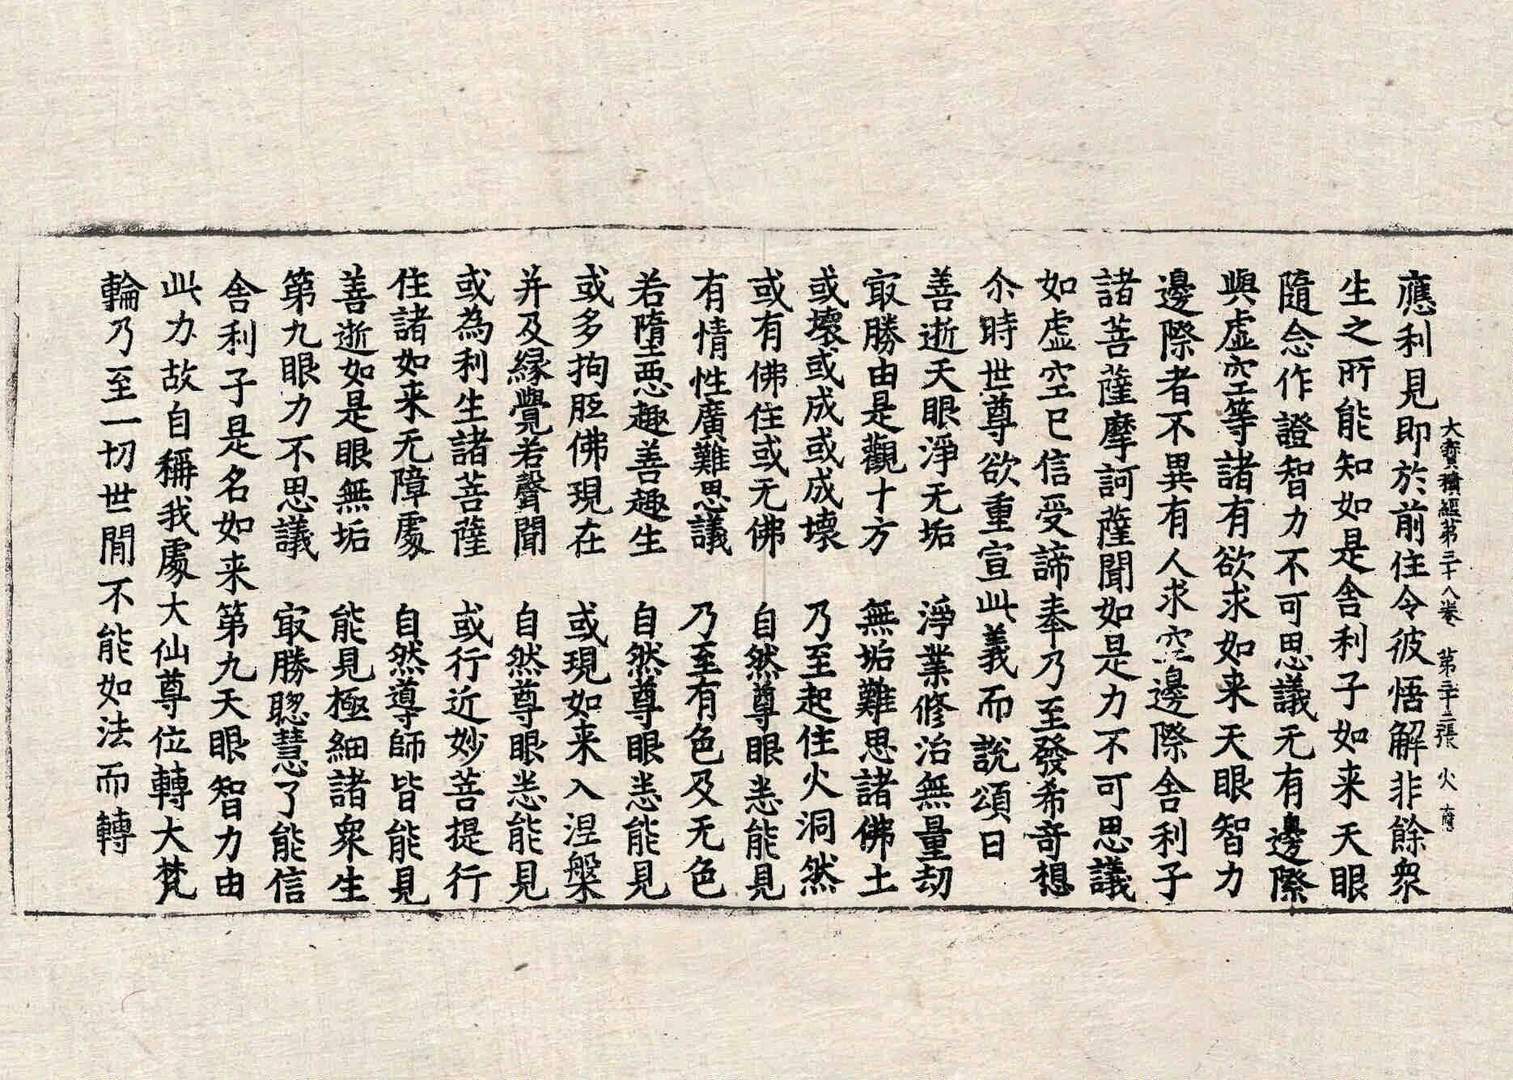 大寶積經第三十八卷　第二十二張　火
應利見即於前住令彼悟解非餘衆
生之所能知如是舎利子如来天眼
隨念作證智力不可思議无有邊際
與虛空等諸有欲求如来天眼智力
邊際者不異有人求空邊際舎利子
諸菩薩摩訶薩聞如是力不可思議
如虛空已信受諦奉乃至發希竒想
尒時世尊欲重宣此義而說頌曰
善逝天眼淨无垢　淨業修治無量劫
㝡勝由是觀十方　無垢難思諸佛土
或壞或成或成壞　乃至起住火洞然
或有佛住或无佛　自然尊眼悉能見
有情性廣難思議　乃至有色及无色
若墮惡趣善趣生　自然尊眼悉能見
或多拘胝佛現在　或現如来入涅槃
并及緣覺若聲聞　自然尊眼悉能見
或為利生諸菩薩　或行近妙菩提行
住諸如来无障處　自然導師皆能見
善逝如是眼無垢　能見極細諸衆生
第九眼力不思議　㝡勝聦慧了能信
舎利子是名如来第九天眼智力由
此力故自稱我處大仙尊位轉大梵
輪乃至一切世閒不能如法而轉